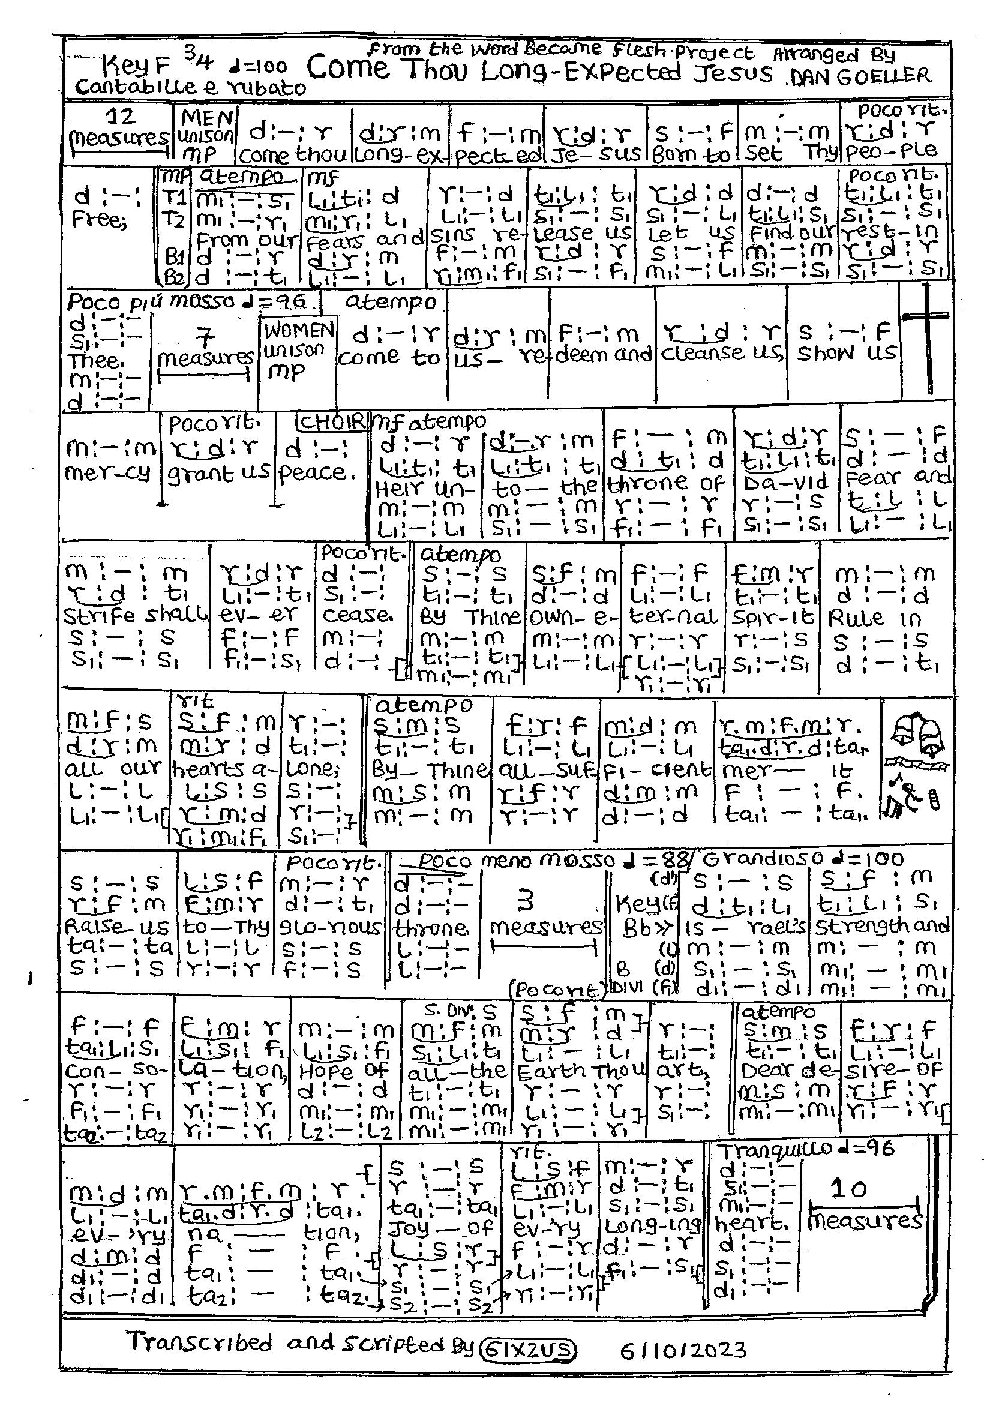 From the Word Became Flesh Project Arranged By
Key F 3/4 d=100 Come Thou Long-Expected Jesus DAN GOELLER
Cantabille e rubato
12 measures MEN unison mp d:-:r d:r:m f:-:m r:d:r s:-:f m:-:m poco rit. r:d:r
Come thou Long-ex- pected Je-sus Born to Set Thy peo-ple
d:-: mp atempo mf poco rit.
T1 m₁:-:s₁ l₁:t₁:d r:-:d t₁:l₁:t₁ r:d:d d:-:d t₁:l₁:t₁
Free; T2 m₁:-:r₁ m₁:r₁:l₁ l₁:-:l₁ s₁:-:s₁ s₁:-:l₁ t₁:l₁:s₁ s₁:-:s₁
From our Fears and sins re- lease us Let us Find our rest-in
B1 d:-:r d:r:m f:-:m r:d:r s:-:f m:-:m r:d:r
B2 d:-:t₁ l₁:-:l₁ r₁:m₁:f₁ s₁:-:f₁ m₁:-:l₁ s₁:-:s₁ s₁:-:s₁
Poco più mosso d=96 atempo
d:-:-
s₁:-:- 7 measures WOMEN unison mp d:-:r d:r:m f:-:m r:d:r s:-:f
Thee. come to us- re- deem and cleanse us, show us
m:-:-
d:-:-
poco rit. CHOIR mf atempo
m:-:m r:d:r d:-: d:-:r d:-.r:m f:-:m r:d:r s:-:f
l₁:t₁:t₁ l₁:t₁:t₁ d:t₁:d t₁:l₁:t₁ d:-:d
mer-cy grant us peace. Heir un- to- the throne of Da-vid Fear and
m:-:m m:-:m r:-:r r:-:s t₁:l₁:l₁
l₁:-:l₁ s₁:-:s₁ f₁:-:f₁ s₁:-:s₁ l₁:-:l₁
poco rit. atempo
m:-:m r:d:r d:-: s:-:s s:f:m f:-:f f:m:r m:-:m
r:d:t₁ l₁:-:t₁ s₁:-: t₁:-:t₁ d:-:d l₁:-:l₁ t₁:-:t₁ d:-:d
Strife shall ev-er cease. By Thine own-e- ter-nal Spir-it Rule in
s:-:s f:-:f m:-: m:-:m m:-:m r:-:r r:-:s s:-:s
s₁:-:s₁ f₁:-:s₁ d:-: t₁:-:t₁ l₁:-:l₁ l₁:-:l₁ s₁:-:s₁ d:-:t₁
m₁:-:m₁ r₁:-:r₁
rit atempo
m:f:s s:f:m r:-: s:m:s f:r:f m:d:m r.m:f.m:r.
d:r:m m:r:d t₁:-: t₁:-:t₁ l₁:-:l₁ l₁:-:l₁ ta₁.d:r.d:ta₁
all our hearts a- lone; By- Thine all-suf- fi-cient mer- it
l₁:-:l l:s:s s:-: m:s:m r:f:r d:m:m f:-:f.
l₁:-:l₁ r:m:d r:-: m:-:m r:-:r d:-:d ta₁:-:ta₁.
r₁:m₁:f₁ s₁:-:
poco rit. Poco meno mosso d=88/ Grandioso d=100
s:-:s l:s:f m:-:r d:-:- (d¹) s:-:s s:f:m
r:f:m f:m:r d:-:t₁ d:-:- 3 measures Key(f) d:t₁:l₁ t₁:l₁:s₁
Raise us to-Thy glo-rious throne. Bb» Is-rael's Strength and
ta:-:ta l:-:l s:-:s l:-:- (l) m:-:m m:-:m
s:-:s r:-:r f:-:s l₁:-:- B (d) s₁:-:s₁ m₁:-:m₁
(poco rit) DIVI (f₁) d₁:-:d₁ m₁:-:m₁
S. DIV. atempo
f:-:f f:m:r m:-:m m:f:m s:f:m r:-: s:m:s f:r:f
ta₁:l₁:s₁ l₁:s₁:f₁ l₁:s₁:f₁ s₁:l₁:t₁ l₁:-:l₁ t₁:-: t₁:-:t₁ l₁:-:l₁
Con-so- la-tion, Hope of all-the Earth Thou art, Dear de- sire-of
r:-:r r:-:r d:-:d t₁:-:t₁ r:-:r r:-: m:s:m r:f:r
f₁:-:f₁ r₁:-:r₁ m₁:-:m₁ m₁:-:m₁ l₁:-:l₁ s₁:-: m₁:-:m₁ r₁:-:r₁
ta₂:-:ta₂ r₁:-:r₁ l₂:-:l₂ m₁:-:m₁ r₁:-:r₁
rit. Tranquillo d=96
m:d:m r.m:f.m:r. s:-:s l:s:f m:-:r d:-:-
l₁:-:l₁ ta₁.d:r.d:ta₁. r:-:r f:m:r d:-:t₁ s₁:-:- 10
ta₁:-:ta₁ l₁:-:l₁ s₁:-:s₁ m₁:-:-
ev-'ry na- tion, Joy-of ev-'ry Long-ing heart. measures
d:m:d f:-:f l:s:r f:-:r d:-:r d:-:-
d₁:-:d ta₁:-:ta₁. r:-:r l₁:-:l₁ f₁:-:s₁ s₁:-:-
d₁:-:d₁ ta₂:-:ta₂. s₁:-:s₁ r₁:-:r₁ d:-:-
s₂:-:s₂
Transcribed and scripted By 61X2US 6/10/2023